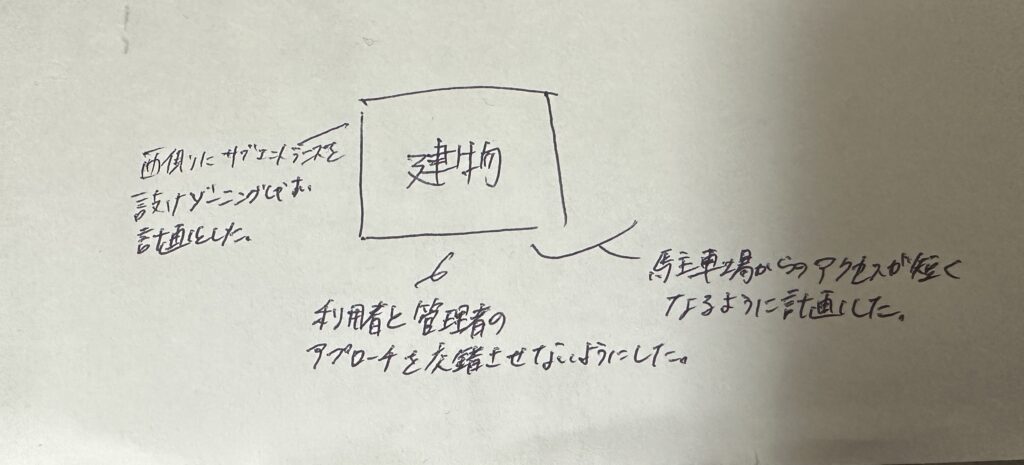 建物
西側にサブエントランスを
設けゾーニングして
計画した。
利用者と管理者の
アプローチを交錯させないようにした。
駐車場からのアクセスが短く
なるように計画した。